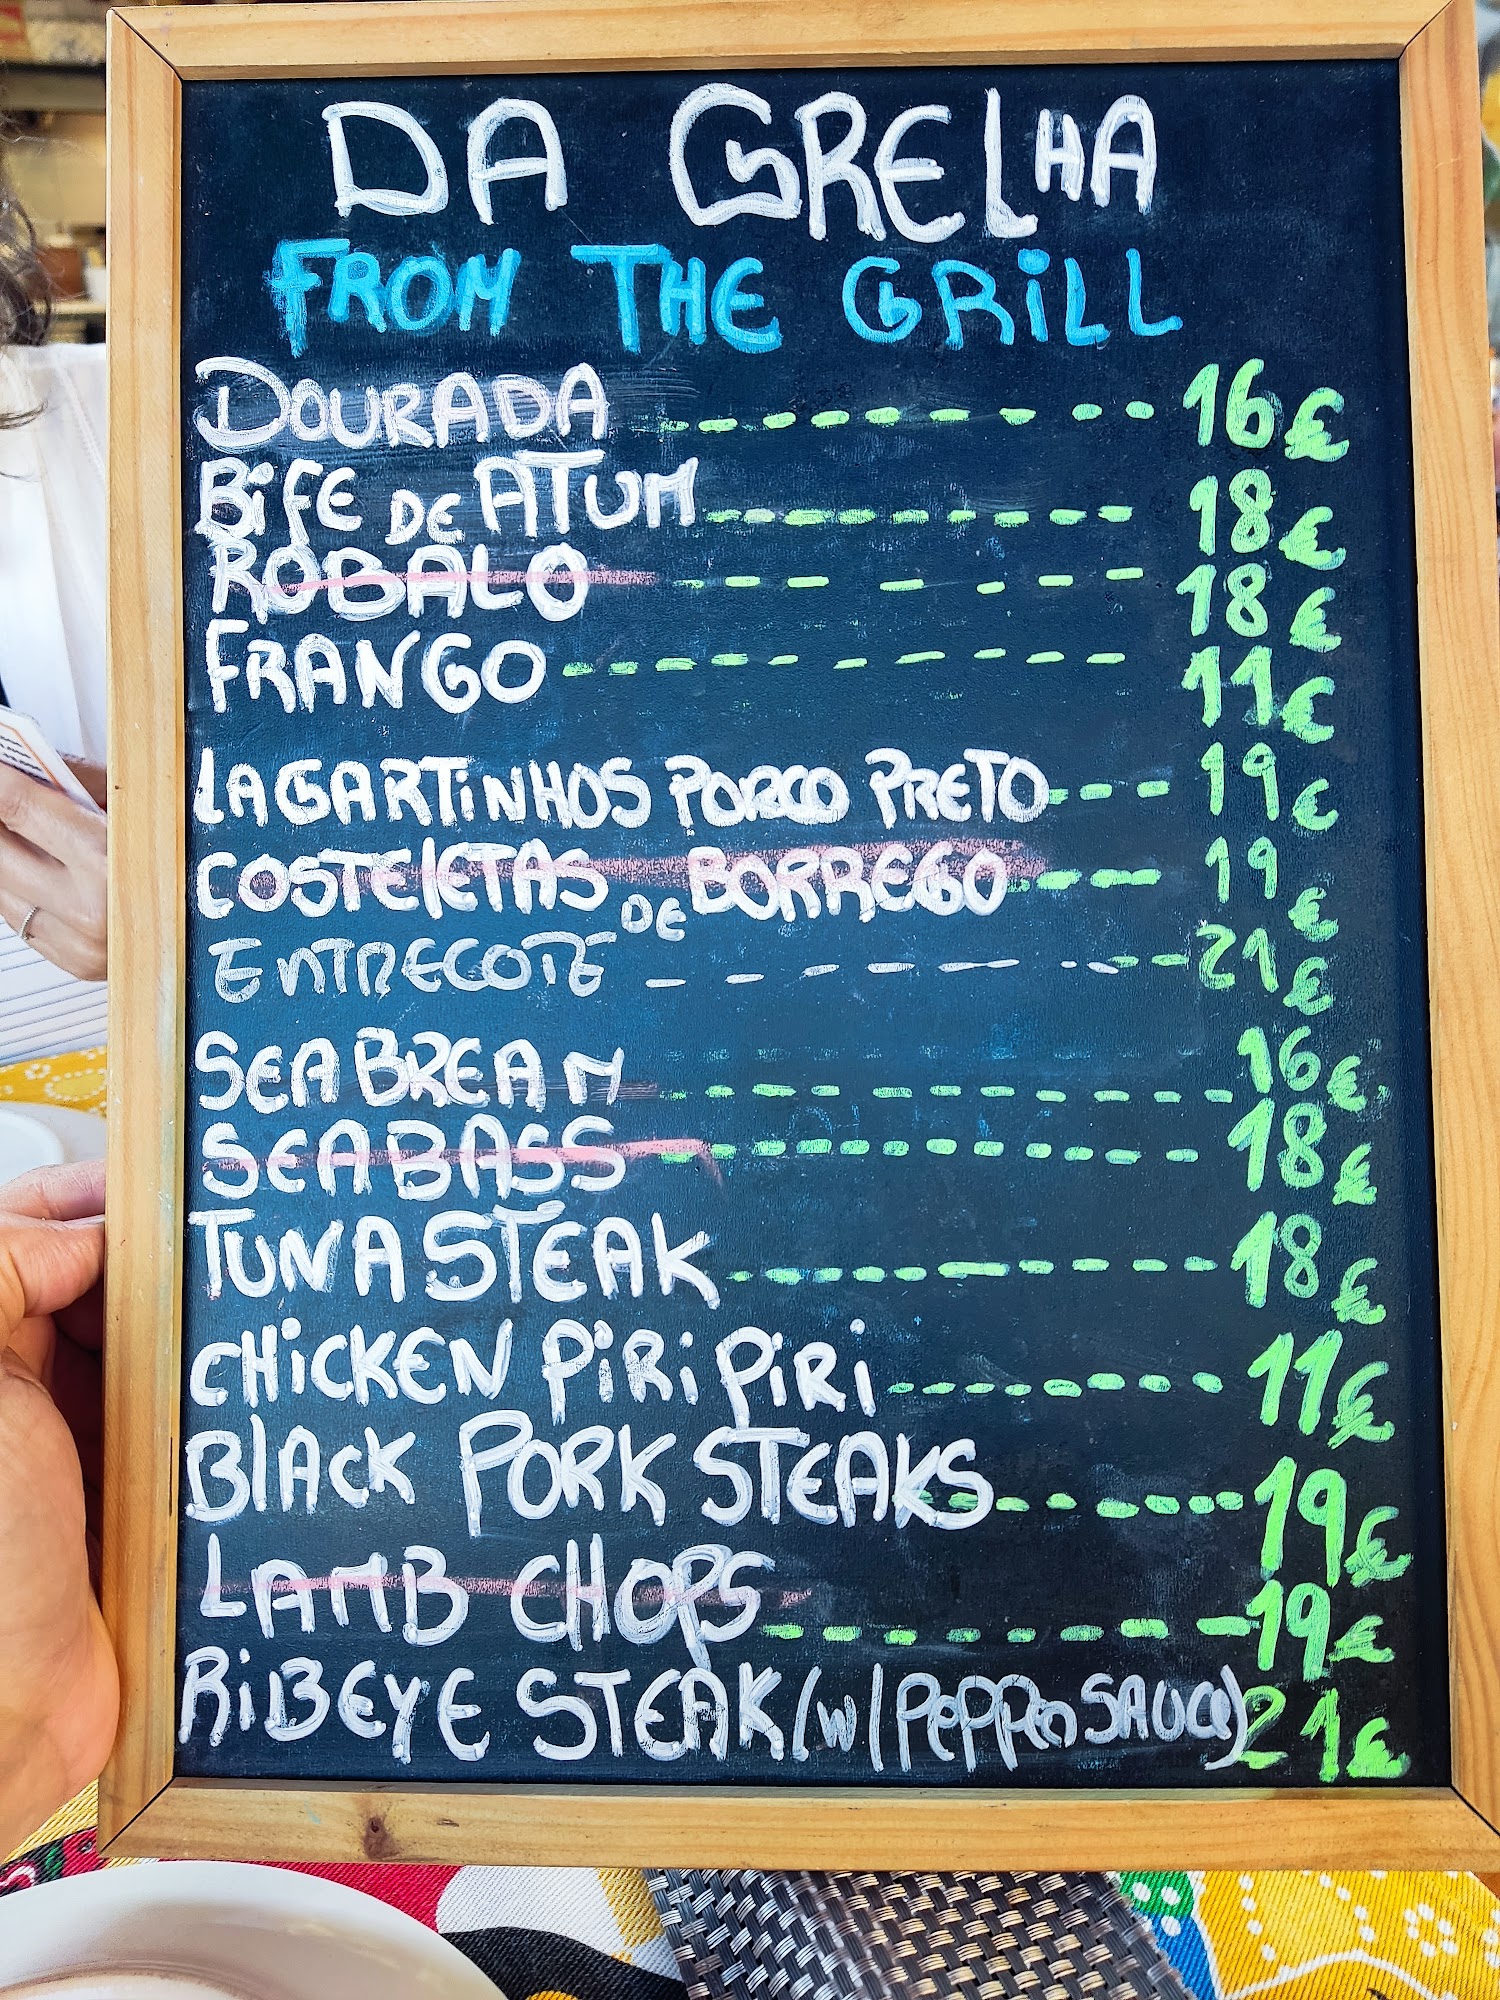 DA GRELHA
FROM THE GRiLL
DOURADA -------- 16€
BiFE DE ATUM -------- 18€
ROBALO ------- 18€
FRANGO --------- 11€
LAGARTiNHOS PORCO PRETO --- 19€
COSTELETAS DE BORREGO --- 19€
ENTRECOTE ------- 21€
SEA BREAM --------- 16€
SEA BASS --------- 18€
TUNA STEAK --------- 18€
CHiCKEN PiRi PiRi ------- 11€
BLACK PORK STEAKS ------ 19€
LAMB CHOPS ------- 19€
RiBEYE STEAK (w/ PEPPER SAUCE) 21€